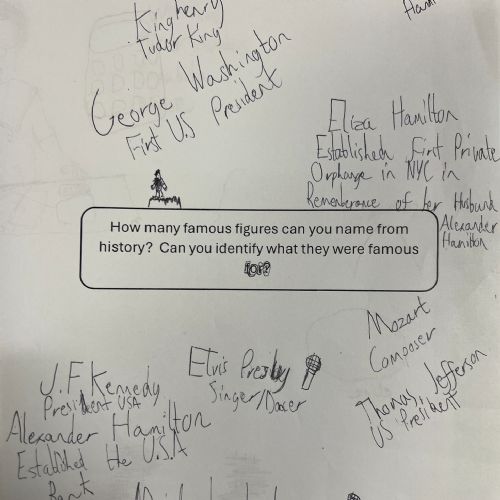 King henry
Tudor King
Hami
George Washington
First U.S President
Eliza Hamilton
Established First Private
Orphange in NYC in
Rememberance of her Husband
Alexander
Hamilton
How many famous figures can you name from
history? Can you identify what they were famous
for?
Mozart
Composer
J.F. Kennedy
President USA
Elvis Presly
Singer/Dacer
Thomas Jefferson
US President
Alexander Hamilton
Established the U.S.A
Bank